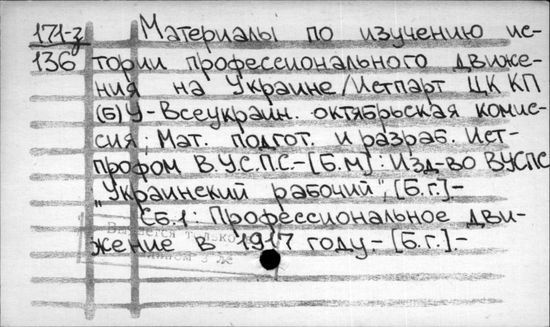 171-з Материалы по изучению ис-
136 тории профессионального движе-
ния на Украине/Истпарт ЦК КП
(б)У-Всеукраин. октябрьская комис-
сия; Мат. подгот. и разраб. Ист-
профом В.У.С.П.С.-[Б.м]: Изд-во ВУСПС
"Украинский рабочий", [Б.г.]-
Сб.1: Профессиональное дви-
жение в 1917 году-[Б.г.]-
только